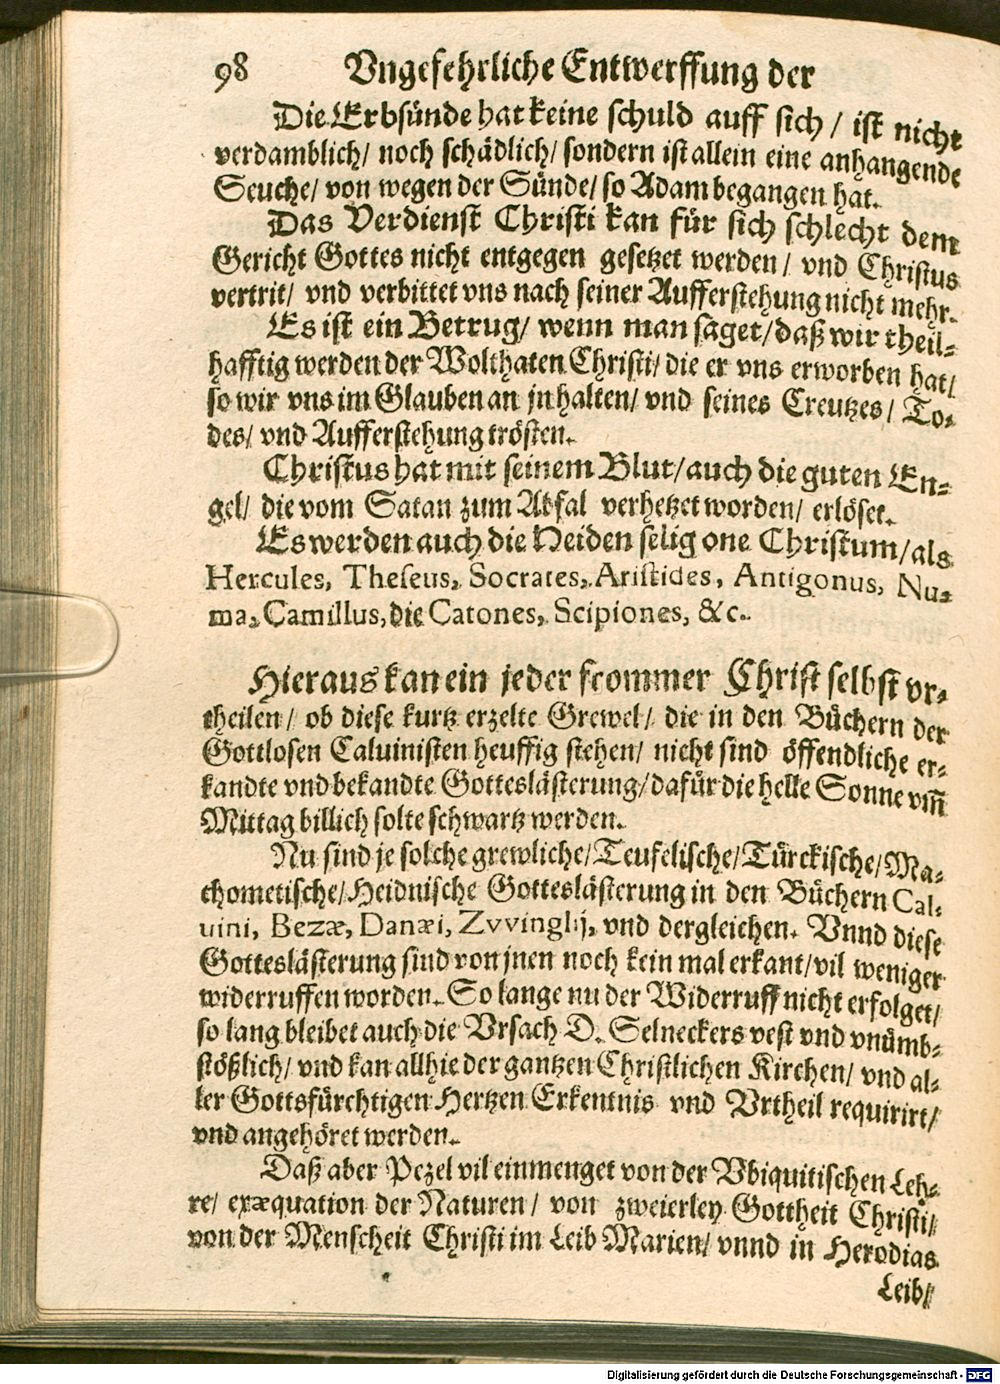 98 Vngefehrliche Entwerffung der
Die Erbsünde hat keine schuld auff sich / ist nicht
verdamblich/ noch schädlich/ sondern ist allein eine anhangende
Seuche/ von wegen der Sünde/ so Adam begangen hat.
Das Verdienst Christi kan für sich schlecht dem
Gericht Gottes nicht entgegen gesetzet werden/ vnd Christus
vertrit/ vnd verbittet vns nach seiner Aufferstehung nicht mehr.
Es ist ein Betrug/ wenn man saget/ daß wir theil-
hafftig werden der Wolthaten Christi/ die er vns erworben hat/
so wir vns im Glauben an jn halten/ vnd seines Creutzes/ To-
des/ vnd Aufferstehung trösten.
Christus hat mit seinem Blut/ auch die guten En-
gel/ die vom Satan zum Abfal verhetzet worden/ erlöset.
Es werden auch die Heiden selig one Christum/ als
Hercules, Theseus, Socrates, Aristides, Antigonus, Nu-
ma, Camillus, die Catones, Scipiones, &c.
Hieraus kan ein jeder frommer Christ selbst vr-
theilen/ ob diese kurtz erzelte Grewel/ die in den Büchern der
Gottlosen Caluinisten heuffig stehen/ nicht sind öffendliche er-
kandte vnd bekandte Gotteslästerung/ dafür die helle Sonne vm̃
Mittag billich solte schwartz werden.
Nu sind je solche grewliche/ Teufelische/ Türckische/ Ma-
chometische/ Heidnische Gotteslästerung in den Büchern Cal-
uini, Bezæ, Danæi, Zvvinglij, vnd dergleichen. Vnnd diese
Gotteslästerung sind von jnen noch kein mal erkant/ vil weniger
widerruffen worden. So lange nu der Widerruff nicht erfolget/
so lang bleibet auch die Vrsach D. Selneckers vest vnd vnümb-
stößlich/ vnd kan allhie der gantzen Christlichen Kirchen/ vnd al-
ler Gottsfürchtigen Hertzen Erkentnis vnd Vrtheil requirirt/
vnd angehöret werden.
Daß aber Pezel vil einmenget von der Vbiquitischen Leh-
re/ exæquation der Naturen/ von zweierley Gottheit Christi/
von der Menscheit Christi im Leib Marien/ vnnd in Herodias
Leib/
Digitalisierung gefördert durch die Deutsche Forschungsgemeinschaft - DFG